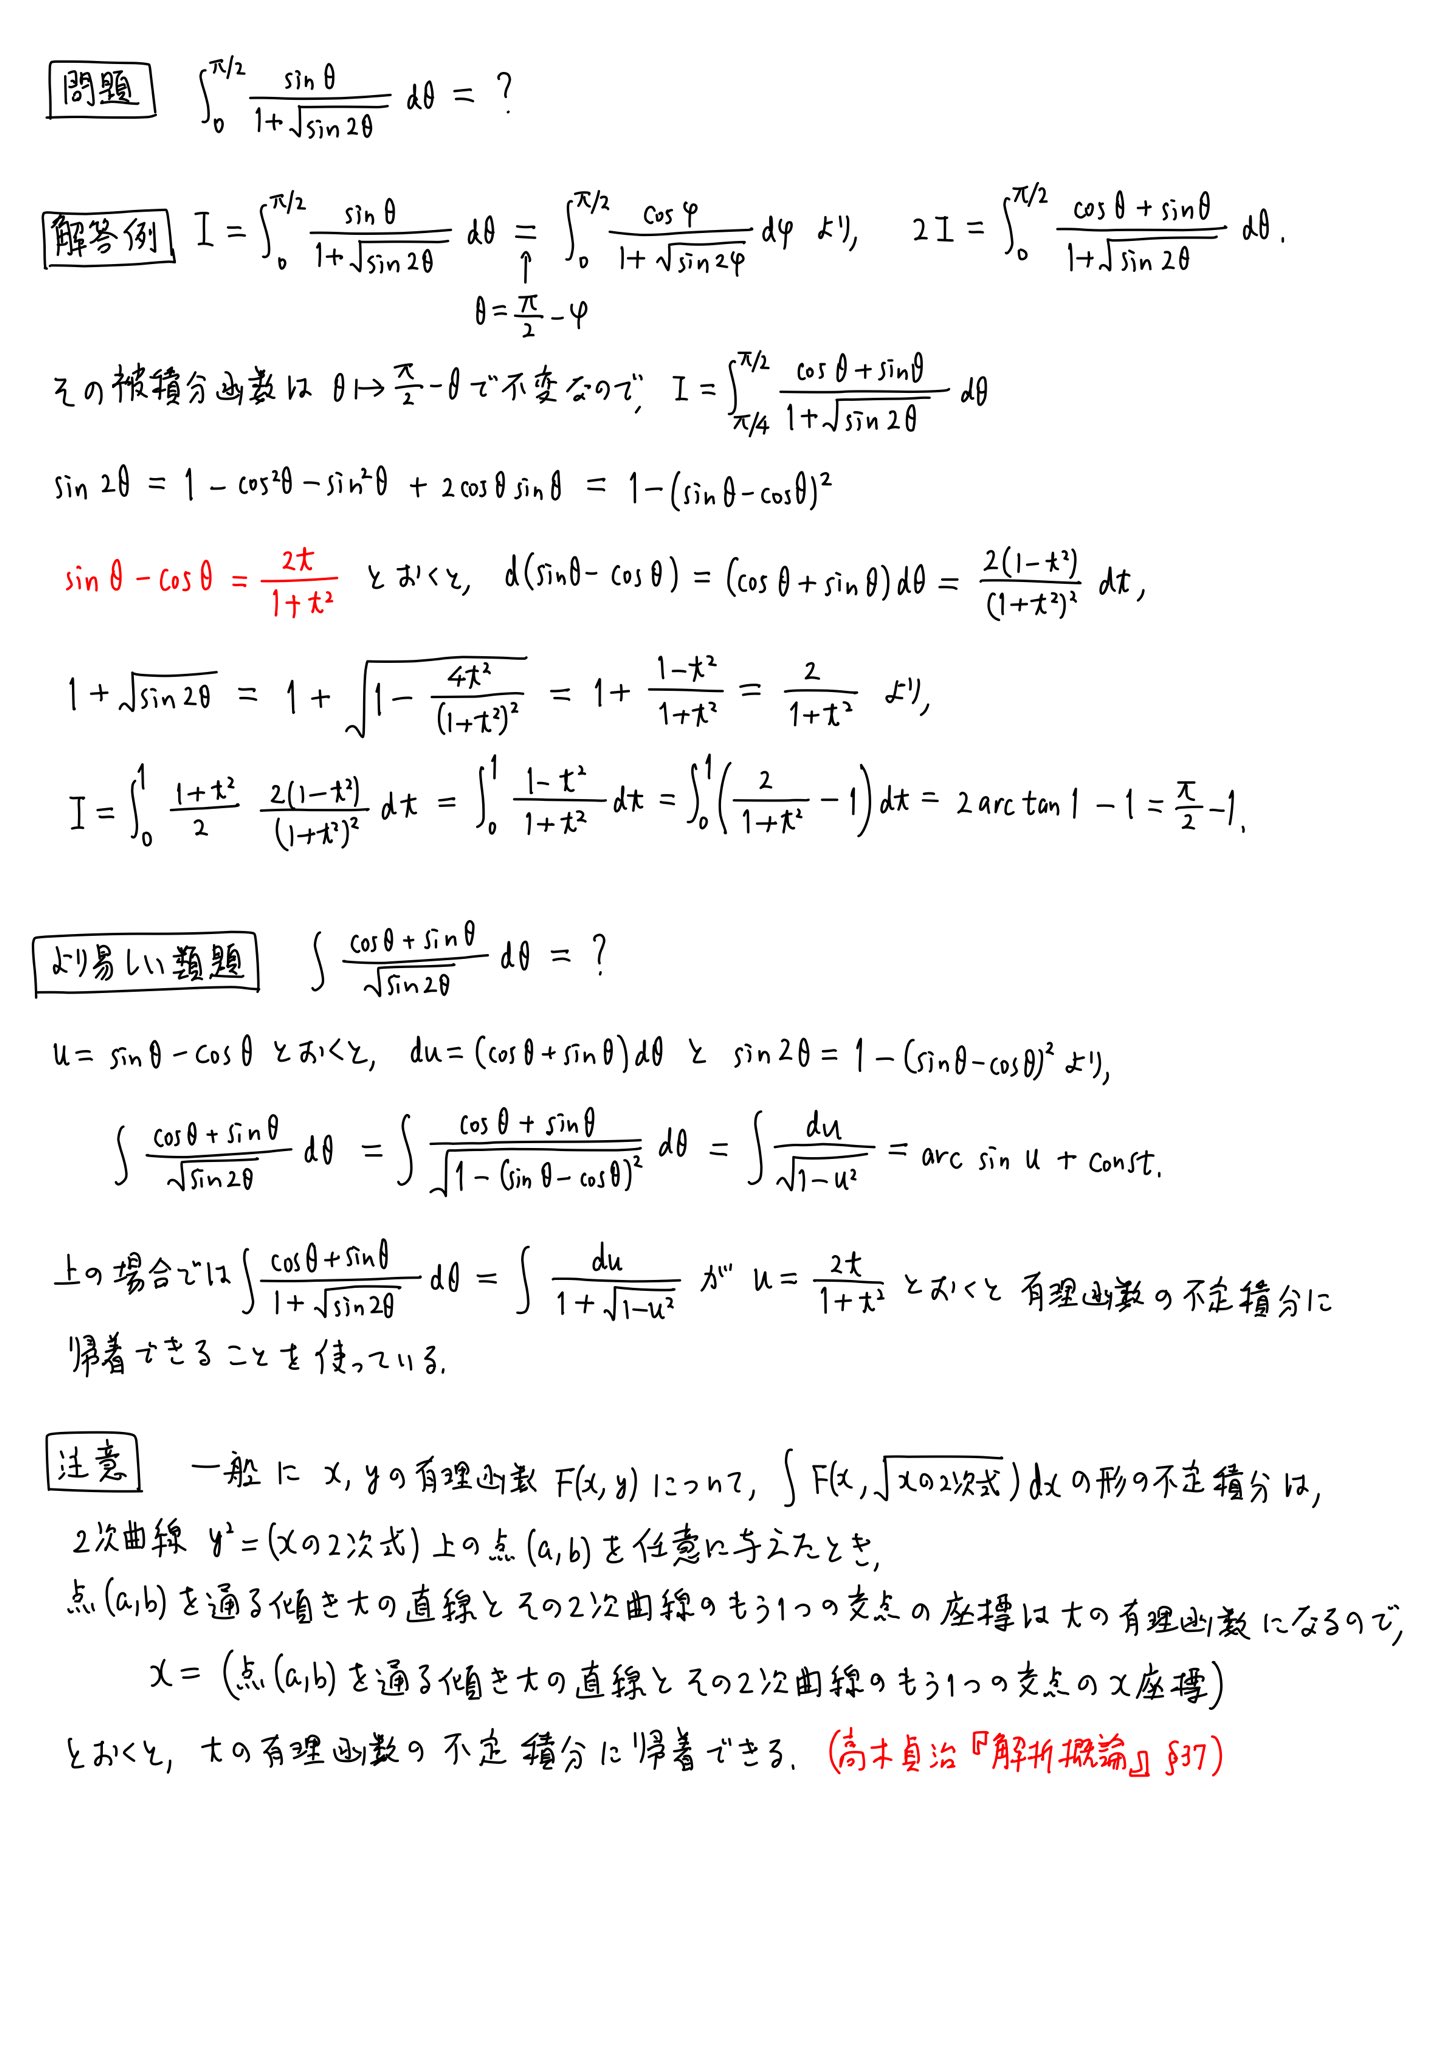 問題 ∫_0^{π/2} sinθ/(1+√(sin2θ)) dθ = ?
解答例 I = ∫_0^{π/2} sinθ/(1+√(sin2θ)) dθ = ∫_0^{π/2} cosφ/(1+√(sin2φ)) dφ より, 2I = ∫_0^{π/2} (cosθ+sinθ)/(1+√(sin2θ)) dθ.
↑
θ = π/2 - φ
その被積分函数は θ↦π/2-θ で不変なので, I = ∫_{π/4}^{π/2} (cosθ+sinθ)/(1+√(sin2θ)) dθ
sin2θ = 1 - cos²θ - sin²θ + 2cosθ sinθ = 1-(sinθ-cosθ)²
sinθ - cosθ = 2t/(1+t²) とおくと, d(sinθ-cosθ) = (cosθ+sinθ)dθ = 2(1-t²)/(1+t²)² dt,
1+√(sin2θ) = 1+√(1 - 4t²/(1+t²)²) = 1+ (1-t²)/(1+t²) = 2/(1+t²) より,
I = ∫_0^1 (1+t²)/2 2(1-t²)/(1+t²)² dt = ∫_0^1 (1-t²)/(1+t²) dt = ∫_0^1 (2/(1+t²) - 1) dt = 2 arctan 1 - 1 = π/2 - 1.
より易しい類題 ∫ (cosθ+sinθ)/√(sin2θ) dθ = ?
u = sinθ - cosθ とおくと, du = (cosθ+sinθ)dθ と sin2θ = 1-(sinθ-cosθ)² より,
∫ (cosθ+sinθ)/√(sin2θ) dθ = ∫ (cosθ+sinθ)/√(1-(sinθ-cosθ)²) dθ = ∫ du/√(1-u²) = arc sin u + const.
上の場合では ∫ (cosθ+sinθ)/(1+√(sin2θ)) dθ = ∫ du/(1+√(1-u²)) が u = 2t/(1+t²) とおくと有理函数の不定積分に
帰着できることを使っている.
注意 一般に x, yの有理函数 F(x,y) について, ∫ F(x, √(xの2次式)) dx の形の不定積分は,
2次曲線 y² = (xの2次式) 上の点 (a,b) を任意に与えたとき,
点(a,b)を通る傾きtの直線とその2次曲線のもう1つの交点の座標はtの有理函数になるので,
x = (点(a,b)を通る傾きtの直線とその2次曲線のもう1つの交点のx座標)
とおくと, tの有理函数の不定積分に帰着できる. (高木貞治『解析概論』§37)